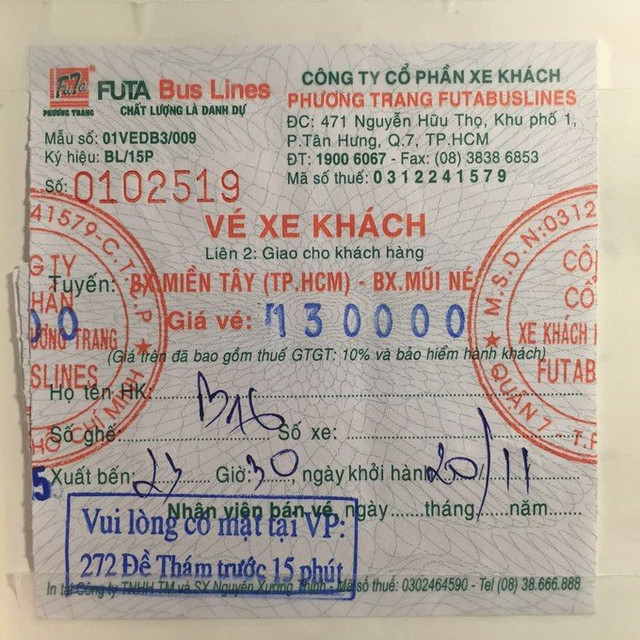 FuTa
PHƯƠNG TRANG
FUTA Bus Lines
CHẤT LƯỢNG LÀ DANH DỰ
Mẫu số: 01VEDB3/009
Ký hiệu: BL/15P
Số: 0102519
CÔNG TY CỔ PHẦN XE KHÁCH
PHƯƠNG TRANG FUTABUSLINES
ĐC: 471 Nguyễn Hữu Thọ, Khu phố 1,
P.Tân Hưng, Q.7, TP.HCM
ĐT: 1900 6067 - Fax: (08) 3838 6853
Mã số thuế: 0312241579
VÉ XE KHÁCH
Liên 2: Giao cho khách hàng
Tuyến: BX.MIỀN TÂY (TP.HCM) - BX.MŨI NÉ
Giá vé: 130000
(Giá trên đã bao gồm thuế GTGT: 10% và bảo hiểm hành khách)
Họ tên HK:
Số ghế: B16 Số xe:
Xuất bến: 23 Giờ: 30, ngày khởi hành 20/11
Nhân viên bán vé, ngày......tháng......năm......
Vui lòng có mặt tại VP:
272 Đề Thám trước 15 phút
In tại Công ty TNHH TM và SX Nguyễn Xương Thịnh - Mã số thuế: 0302464590 - Tel (08) 38.666.888
41579-C.T.C.P
G TY
HẦN
ƯƠNG TRANG
SLINES
HỒ CHÍ MINH
00
5
M.S.D.N:0312
CÔ
CỔ
XE KHÁCH
FUTAB
QUẬN 7 - T.P